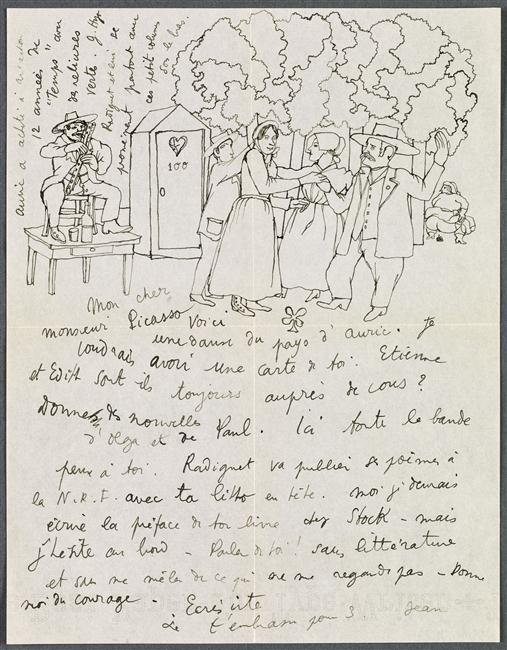 Auric a acheté à
12 années de
"Temps" avec
des reliures
vertes. G. Hugo
Radiguet et lui se
promènent partout avec
ces petits colis
sous le bras.
100
Mon cher
monsieur Picasso Voici
une danse du pays d'Auric. Je
voudrais avoir une carte de toi. Etienne
et Edith sont ils toujours auprès de vous?
Donne des nouvelles
d'Olga et de Paul. Ici toute la bande
pense à toi. Radiguet va publier ses poèmes à
la N.R.F. avec ta litho en tête. Moi je devrais
écrire la préface de ton livre chez Stock - mais
j'hésite au bord - Parler de toi! sans littérature
et sans me mêler de ce qui ne me regarde pas - Donne
moi du courage -
Ecris vite
Je t'embrasse pour 3. Jean